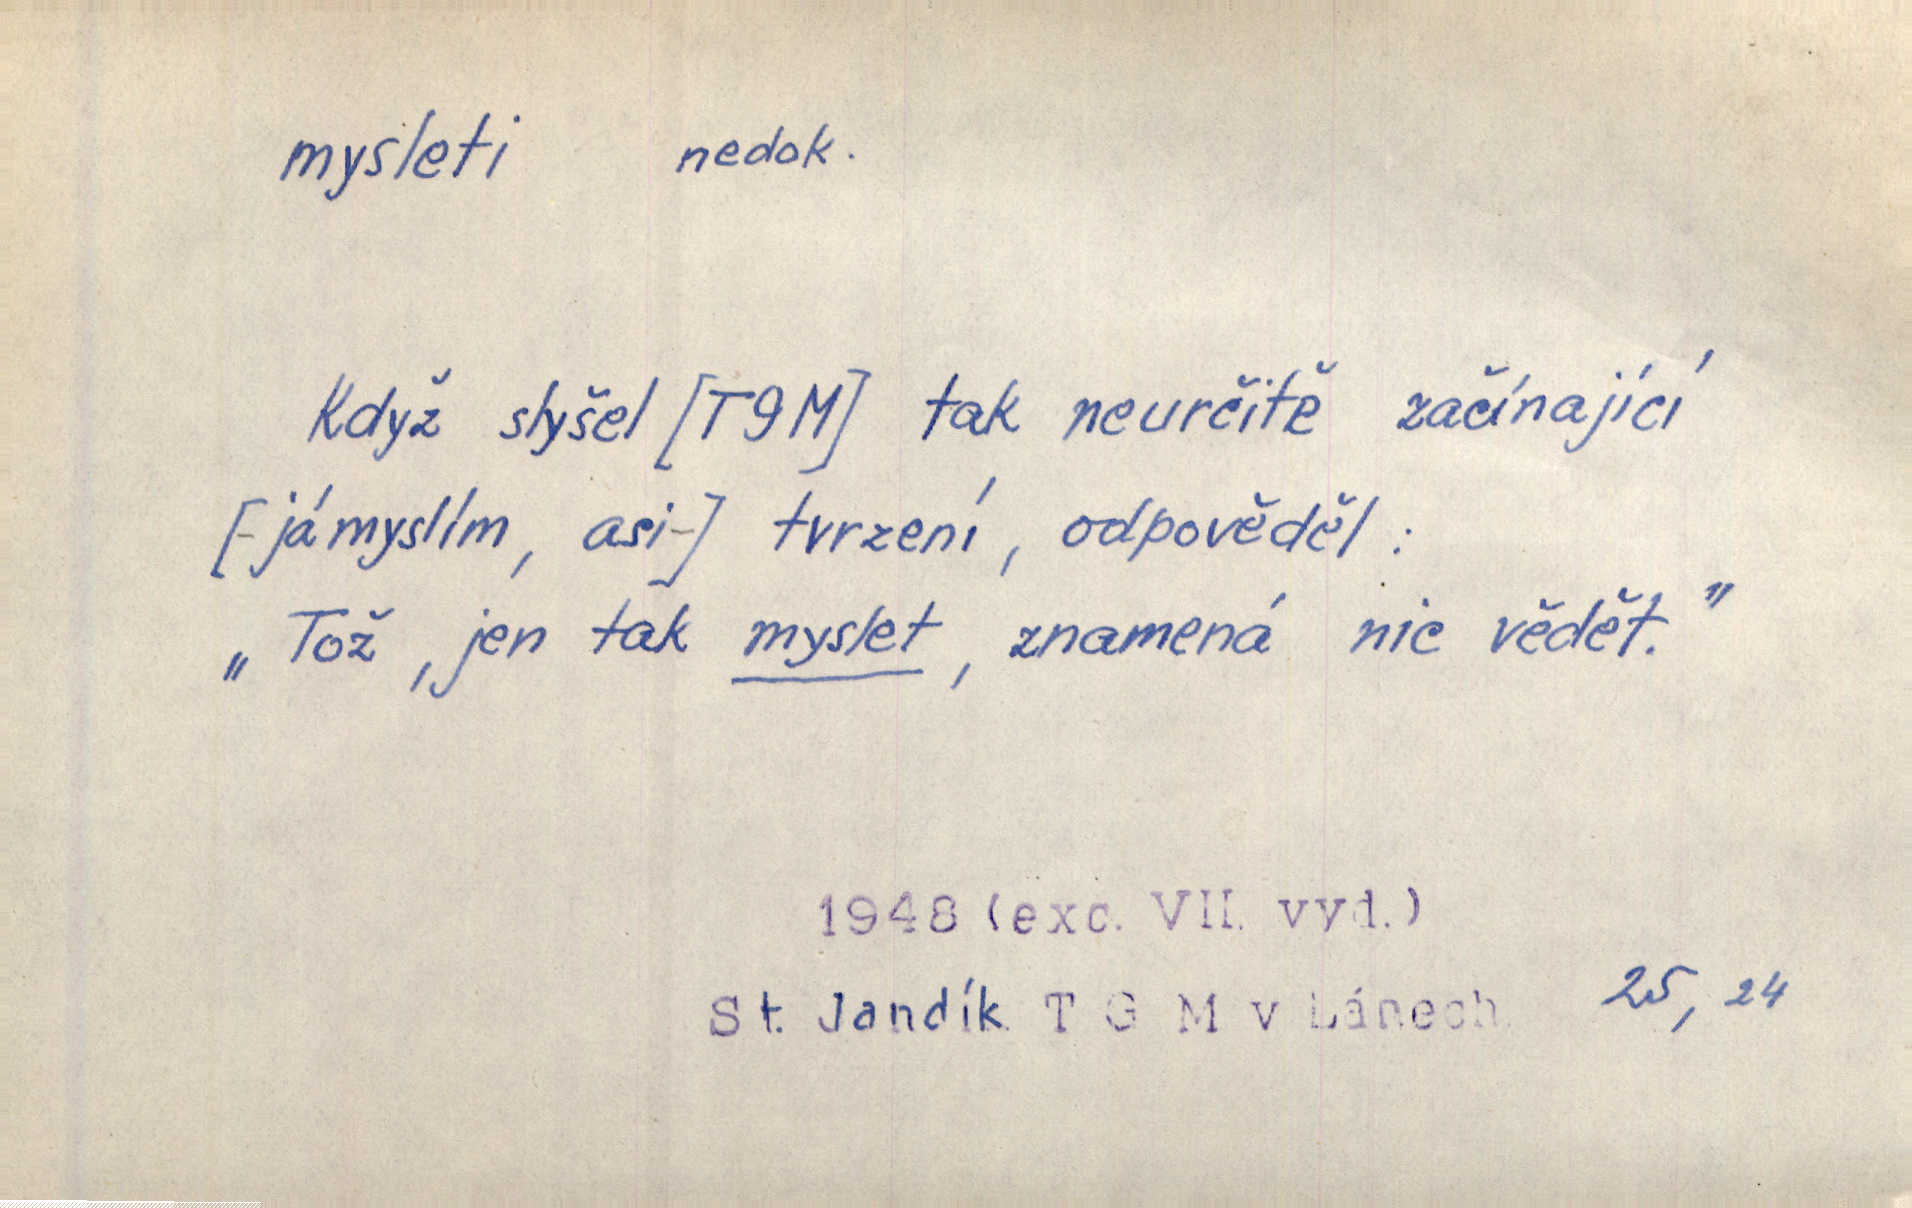 mysleti nedok.
Když slyšel [TGM] tak neurčitě začínající
[-já myslím, asi-] tvrzení, odpověděl:
„Tož, jen tak myslet, znamená nic vědět."
1948 (exc. VII. vyd.)
St. Jandík T G M v Lánech 25, 24